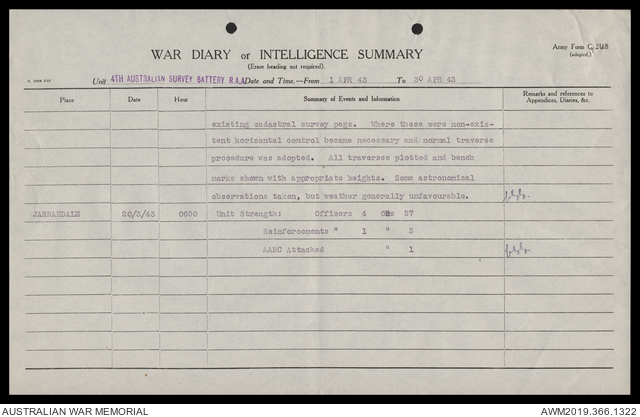 Army Form C. 2118
(adapted.)
WAR DIARY or INTELLIGENCE SUMMARY
(Erase heading not required).
Unit 4TH AUSTRALIAN SURVEY BATTERY, R.A.A. Date and Time.—From 1 APR 43 To 30 APR 43
Place Date Hour Summary of Events and Information Remarks and references to Appendices, Diaries, &c.
existing cadastral survey pegs. Where these were non-exis-
tent horizontal control became necessary and normal traverse
procedure was adopted. All traverses plotted and bench
marks shown with appropriate heights. Some astronomical
observations taken, but weather generally unfavourable.
JARRAHDALE 20/3/43 0600 Unit Strength: Officers 4 ORs 57
Reinforcements " 1 " 3
AAMC Attached " 1
AUSTRALIAN WAR MEMORIAL AWM2019.366.1322